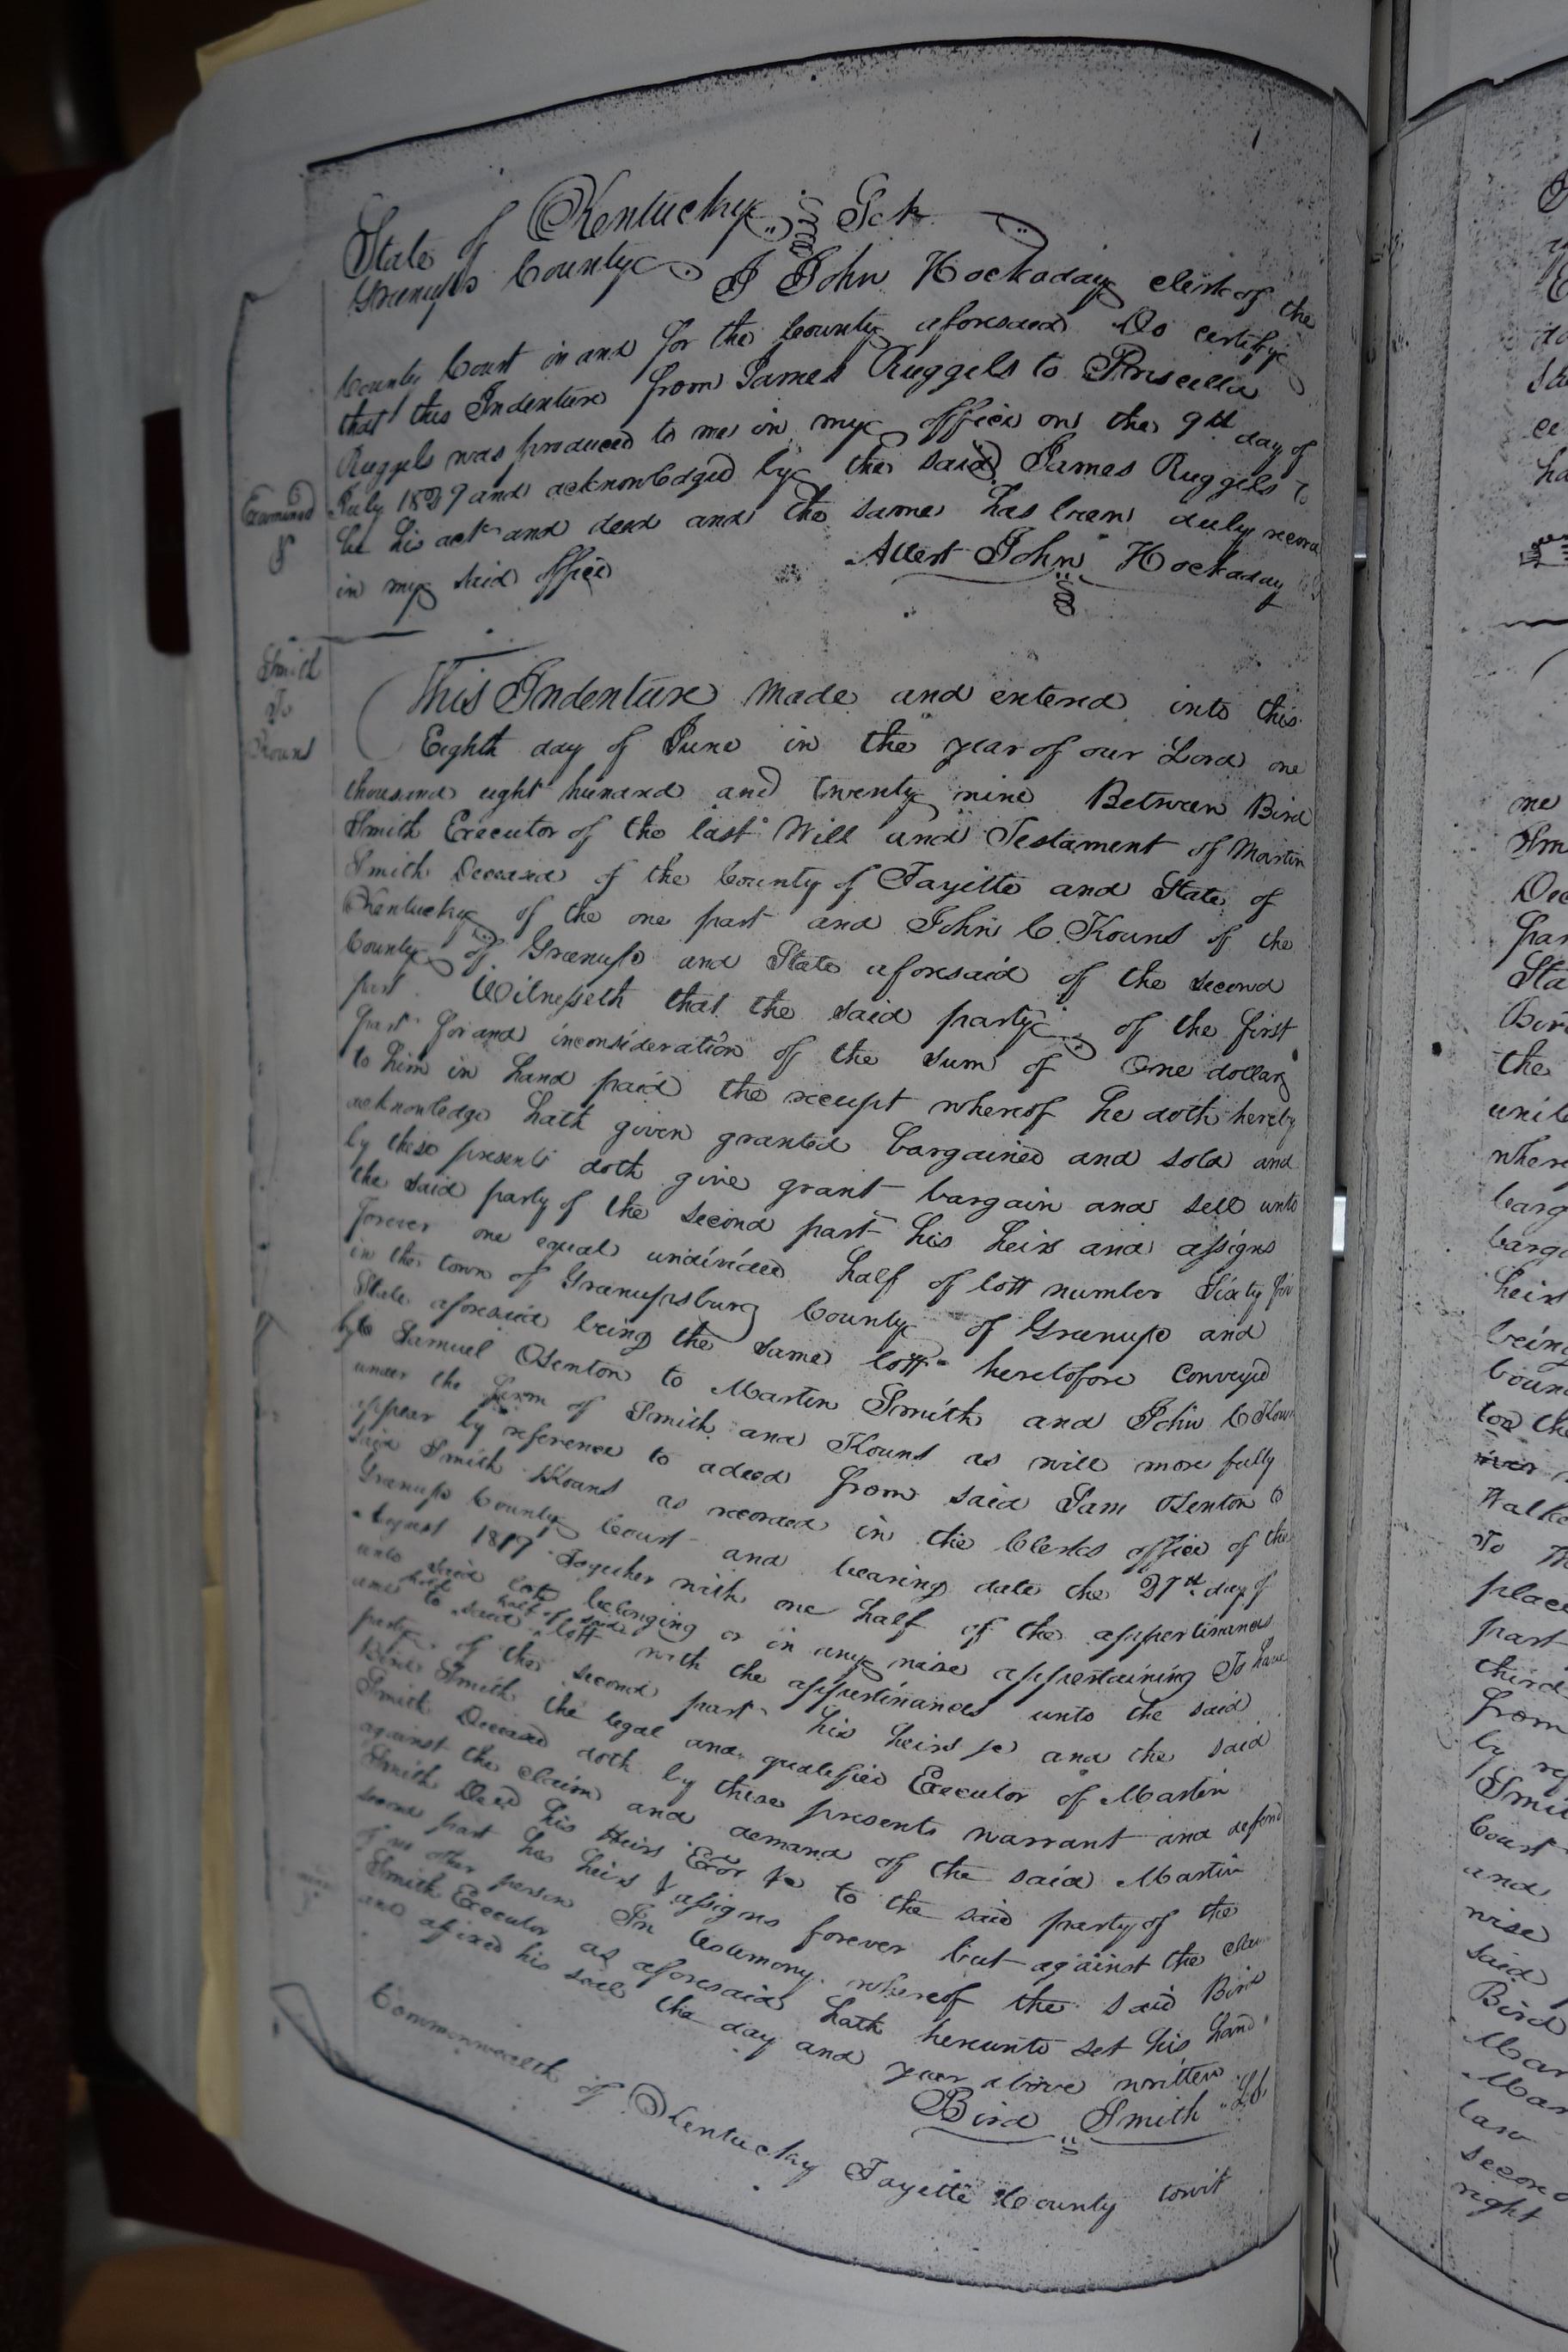 State of Kentucky Sct
Greenup County I John Hockaday clerk of the
County Court in and for the County aforesaid Do certify
that this Indenture from James Ruggels to Priscilla
Ruggels was produced to me in my office on the 9th day of
July 1829 and acknowledged by the said James Ruggels to
be his act and deed and the same has been duly record
in my said office
Attest John Hockaday
Examined
Smith
To
Kouns
This Indenture made and entered into this
Eighth day of June in the year of our Lord one
thousand eight hundred and twenty nine Between Bird
Smith Executor of the last Will and Testament of Martin
Smith Deceased of the County of Fayette and State of
Kentucky of the one part and John C. Kouns of the
County of Greenup and State aforesaid of the second
part Witnesseth that the said party of the first
part for and inconsideration of the sum of One dollar
to him in hand paid the receipt whereof he doth hereby
acknowledge hath given granted bargained and sold and
by these presents doth give grant bargain and sell unto
the said party of the second part his heirs and assigns
forever one equal undivided half of lott number Sixty
in the town of Greenupsburg County of Greenup and
State aforesaid being the same lott heretofore conveyed
by Samuel Osenton to Martin Smith and John C Kouns
under the firm of Smith and Kouns as will more fully
appear by reference to adeed from said Sam Osenton to
said Smith & Kouns as recorded in the Clerks office of the
Greenup County Court and bearing date the 27th day of
August 1817 Together with one half of the appertinances
unto said lott belonging or in any wise appertaining To have
and to hold said half of said lott with the appertinances unto the said
party of the second part his heirs &c and the said
Bird Smith the legal and qualified Executor of Martin
Smith Deceased doth by these presents warrant and defend
against the claim and demand of the said Martin
Smith Decd his Heirs Exor &c to the said party of the
second part his heirs & assigns forever but against the claim
of no other person In testimony whereof the said Bird
Smith Executor as aforesaid hath hereunto set his hand
and affixed his seal the day and year above written
Bird Smith LS
Commonwealth of Kentucky Fayette County towit
me
Dec
par
Sta
Bird
the
unto
where
barg
barga
heirs
being
boun
Walke
To
place
part
third
from
by re
Smit
Court
and
wise
said
Bird
Mar
Mar
law
second
right